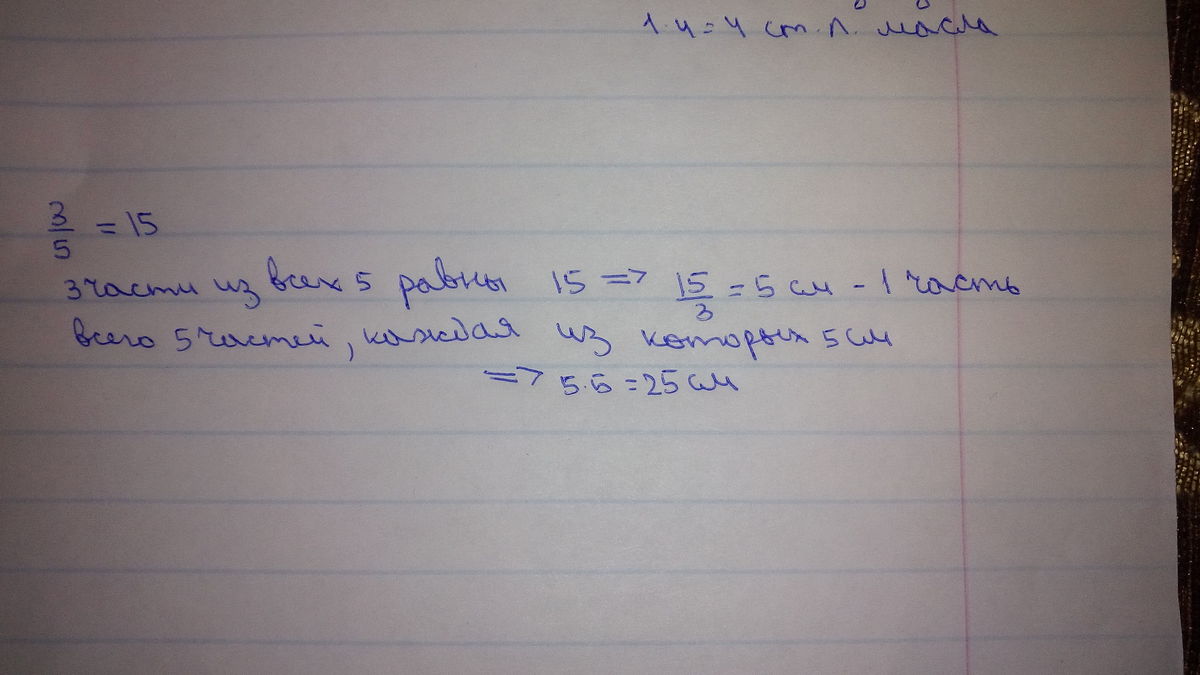 1·4=4 ст.л. масла
3/5 = 15
3 части из всех 5 равны 15 => 15/3 = 5 см - 1 часть
всего 5 частей, каждая из которых 5 см
=> 5·5=25 см